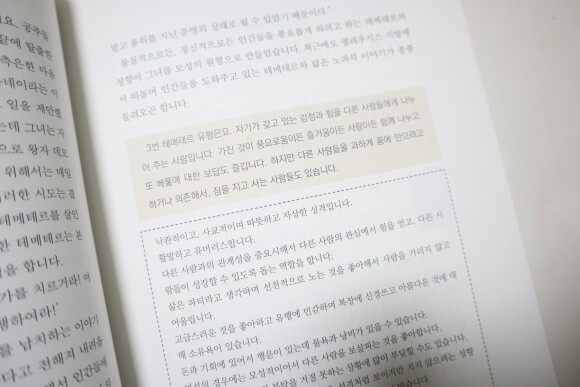 요. 공주들
끝에 탈출한
측은한 마음
네이라는 이
일을 재안했
는데 그녀는 자
으로 왕자 데모
위해서는 매일
이러한 시도는 결
테메테르를 살인
한 테메테르는 본
을 합니다.
가를 치르거라! 여
행하여라!’
를 납치하는 이야기
다고 전해져 내려옴
해서 인간들에
받고 풍위를 지닌 문명의 상태로 될 수 있었기 때문이다.”
물질적으로든, 정신적으로든 인간들을 풍요롭게 하려고 하는 테메테르의
성향이 그녀를 모성의 원형으로 만들었습니다. 최근에도 엘레우시스 지방에
서 떠돌며 인간들을 도와주고 있는 테메테르와 닮은 노파의 이야기가 종종
들려오곤 합니다.
3번 테메테르 유형은요. 자기가 갖고 있는 감정과 힘을 다른 사람들에게 나누
어 주는 사람입니다. 가진 것이 풍요로움이든 즐거움이든 사랑이든 함께 나누고
또 베풂에 대한 보답도 즐깁니다. 하지만 다른 사람들을 과하게 품에 안으려고
하거나 의존해서, 짐을 지고 사는 사람들도 있습니다.
낙관적이고, 사교적이며 따뜻하고 자상한 성격입니다.
활발하고 유머러스합니다.
다른 사람과의 관계성을 중요시해서 다른 사람의 관심에서 힘을 얻고, 다른 사
람들이 성장할 수 있도록 돕는 역할을 합니다.
삶은 파티라고 생각하며 선천적으로 노는 것을 좋아해서 사람을 가리지 않고
어울립니다.
고급스러운 것을 좋아하고 유행에 민감하며 복장에 신경쓰고 아름다운 것에 대
해 소유욕이 있습니다.
돈과 기회에 있어서 행운이 있는데 물욕과 낭비가 있을 수 있습니다.
여성의 경우에는 모성적이어서 다른 사람을 보살피는 것을 좋아합니다.
부탁을 거절 못하는 상황에 많이 부딪힐 수도 있습니다.
성격처럼 보이지만 지지 않으려는 성향